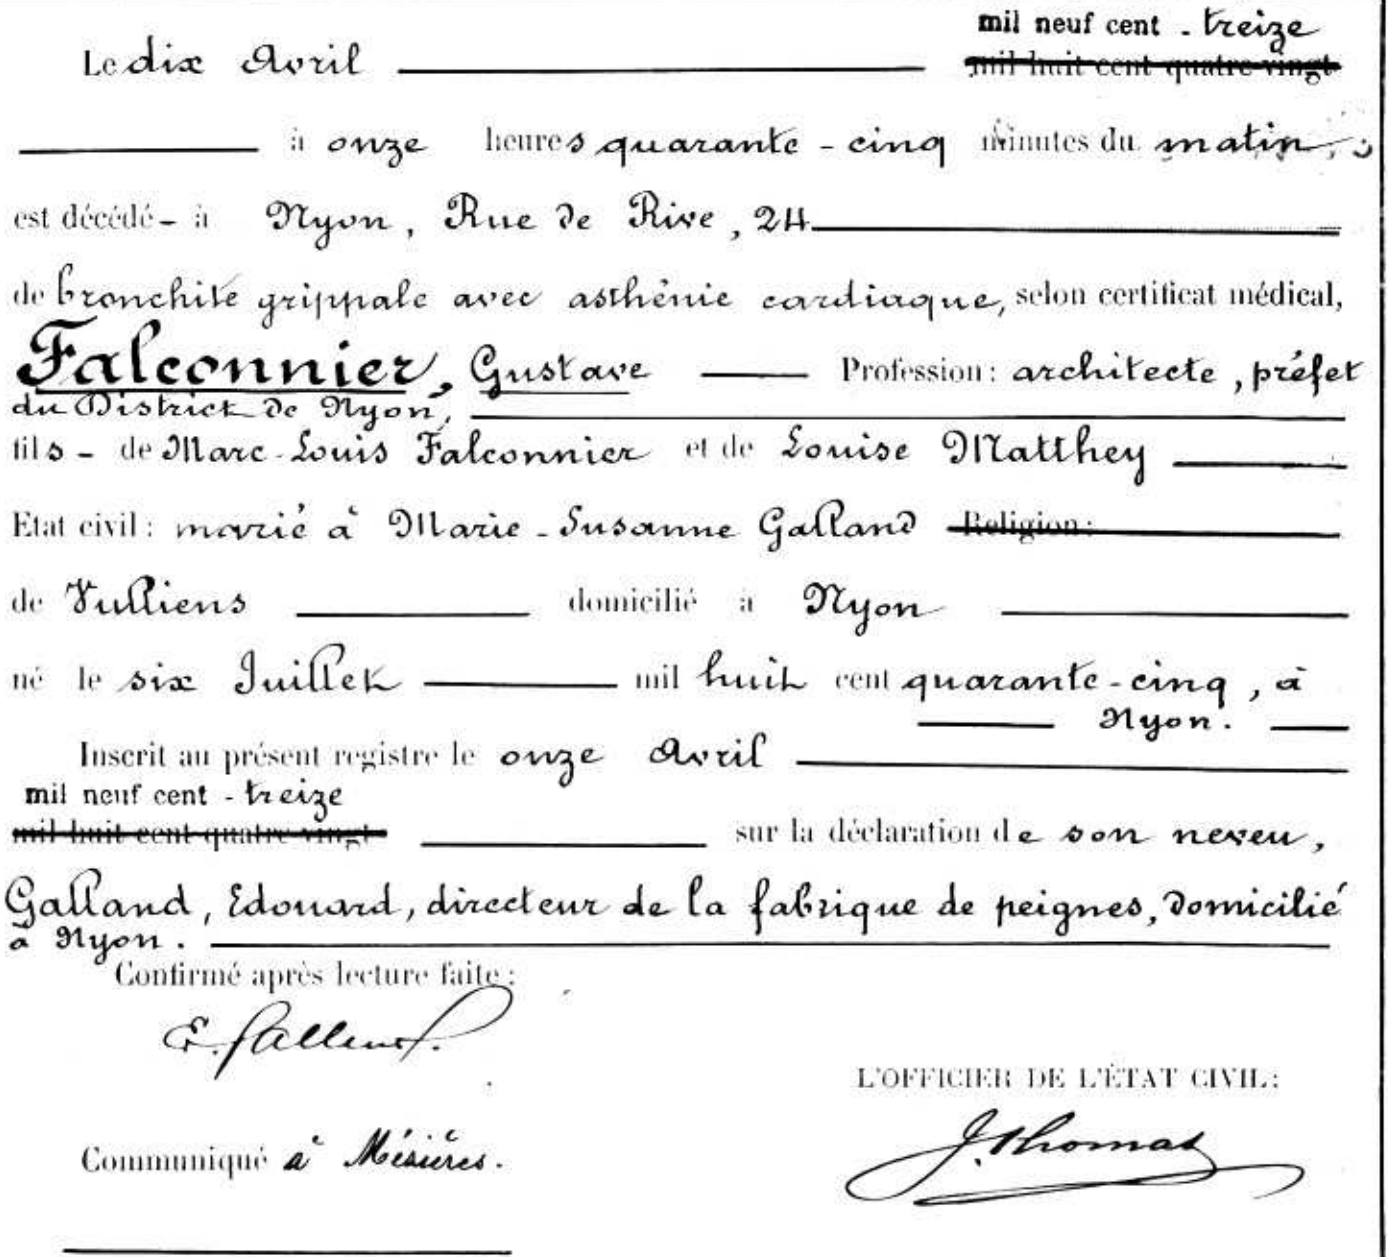 mil neuf cent - treize
Le dix Avril mil huit cent quatre-vingt
à onze heures quarante-cinq minutes du matin,
est décédé - à Nyon, Rue de Rive, 24
de bronchite grippale avec asthénie cardiaque, selon certificat médical,
Falconnier, Gustave Profession: architecte, préfet
du District de Nyon,
fils - de Marc-Louis Falconnier et de Louise Matthey
Etat civil: marié à Marie-Susanne Galland Religion:
de Vulliens domicilié à Nyon
né le six Juillet mil huit cent quarante-cinq, à
Nyon.
Inscrit au présent registre le onze Avril
mil neuf cent - treize
mil huit cent quatre-vingt sur la déclaration de son neveu,
Galland, Edouard, directeur de la fabrique de peignes, domicilié
à Nyon.
Confirmé après lecture faite:
E. Galland.
L'OFFICIER DE L'ÉTAT CIVIL:
J. Thomas
Communiqué à Mézières.